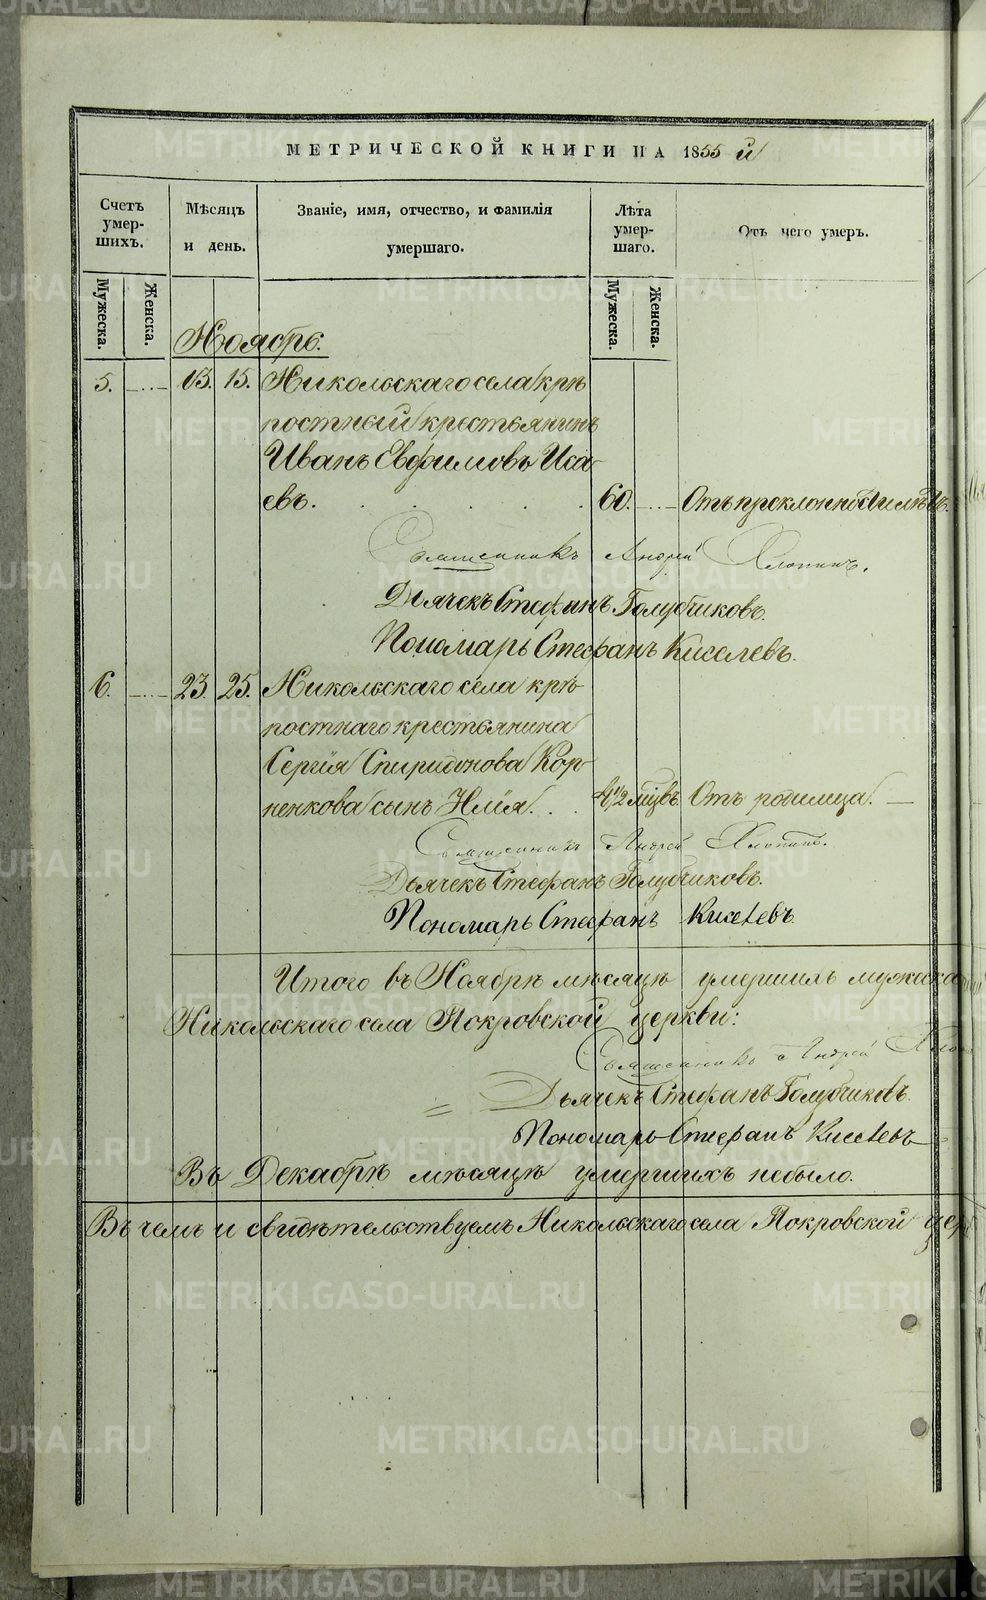 МЕТРИЧЕСКОЙ КНИГИ НА 1855 й
Счетъ умер-шихъ.
Мѣсяцъ и день.
Званіе, имя, отчество, и фамилія умершаго.
Лѣта умер-шаго.
Отъ чего умеръ.
Мужеска.
Женска.
Мужеска.
Женска.
Ноябрь.
5. 13. 15. Никольскаго села крѣ
постный крестьянинъ
Иванъ Евфимовъ Иса
евъ. 60. Отъ преклонности лѣтъ.
Священникъ Андрей Хлопинъ.
Дьячекъ Стефанъ Голубчиковъ.
Пономарь Стефанъ Киселевъ.
6. 23. 25. Никольскаго села крѣ
постнаго крестьянина
Сергія Спиридонова Кор
ненкова сынъ Илія. 4 1/2 мцвъ. Отъ родимца.
Священникъ Андрей Хлопинъ.
Дьячекъ Стефанъ Голубчиковъ.
Пономарь Стефанъ Киселевъ
Итого въ Ноябрѣ мѣсяцѣ умершихъ мужеска
Никольскаго села Покровской церкви:
Священникъ Андрей
Дьячекъ Стефанъ Голубчиковъ.
Пономарь Стефанъ Киселевъ
Въ Декабрѣ мѣсяцѣ умершихъ небыло.
Въ чемъ и свидѣтельствуемъ Никольскаго села Покровской цер
METRIKI.GASO-URAL.RU